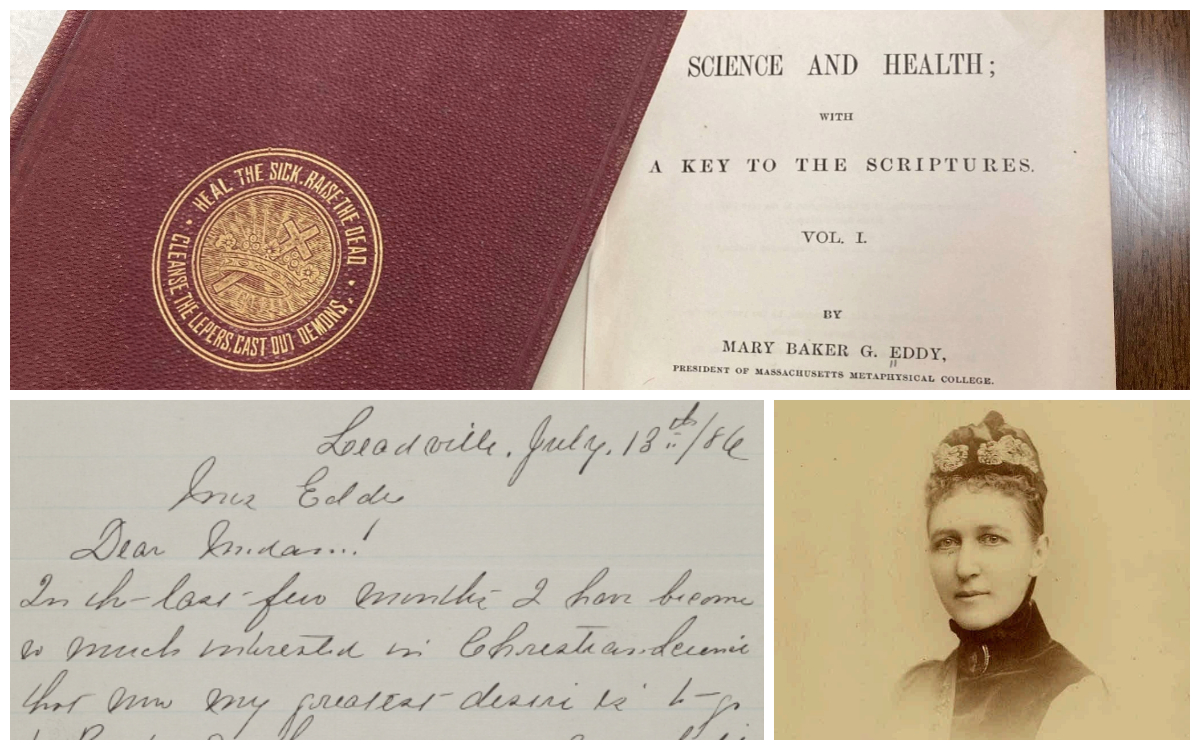 HEAL THE SICK. RAISE THE DEAD. • CLEANSE THE LEPERS. CAST OUT DEMONS. •
SCIENCE AND HEALTH;
WITH
A KEY TO THE SCRIPTURES.
VOL. I.
BY
MARY BAKER G. EDDY,
PRESIDENT OF MASSACHUSETTS METAPHYSICAL COLLEGE.
Leadville, July, 13th/86
Mrs Eddy
Dear Madam!
In the last few months I have become
so much interested in Christian Science
that now my greatest desire is to go
to